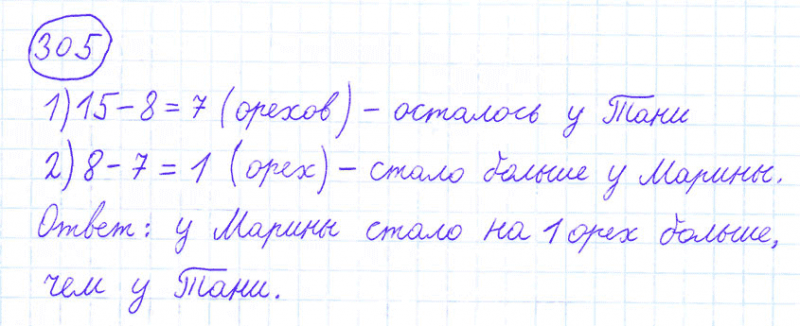 305
1) 15 - 8 = 7 (орехов) - осталось у Тани
2) 8 - 7 = 1 (орех) - стало больше у Марины.
Ответ: у Марины стало на 1 орех больше,
чем у Тани.